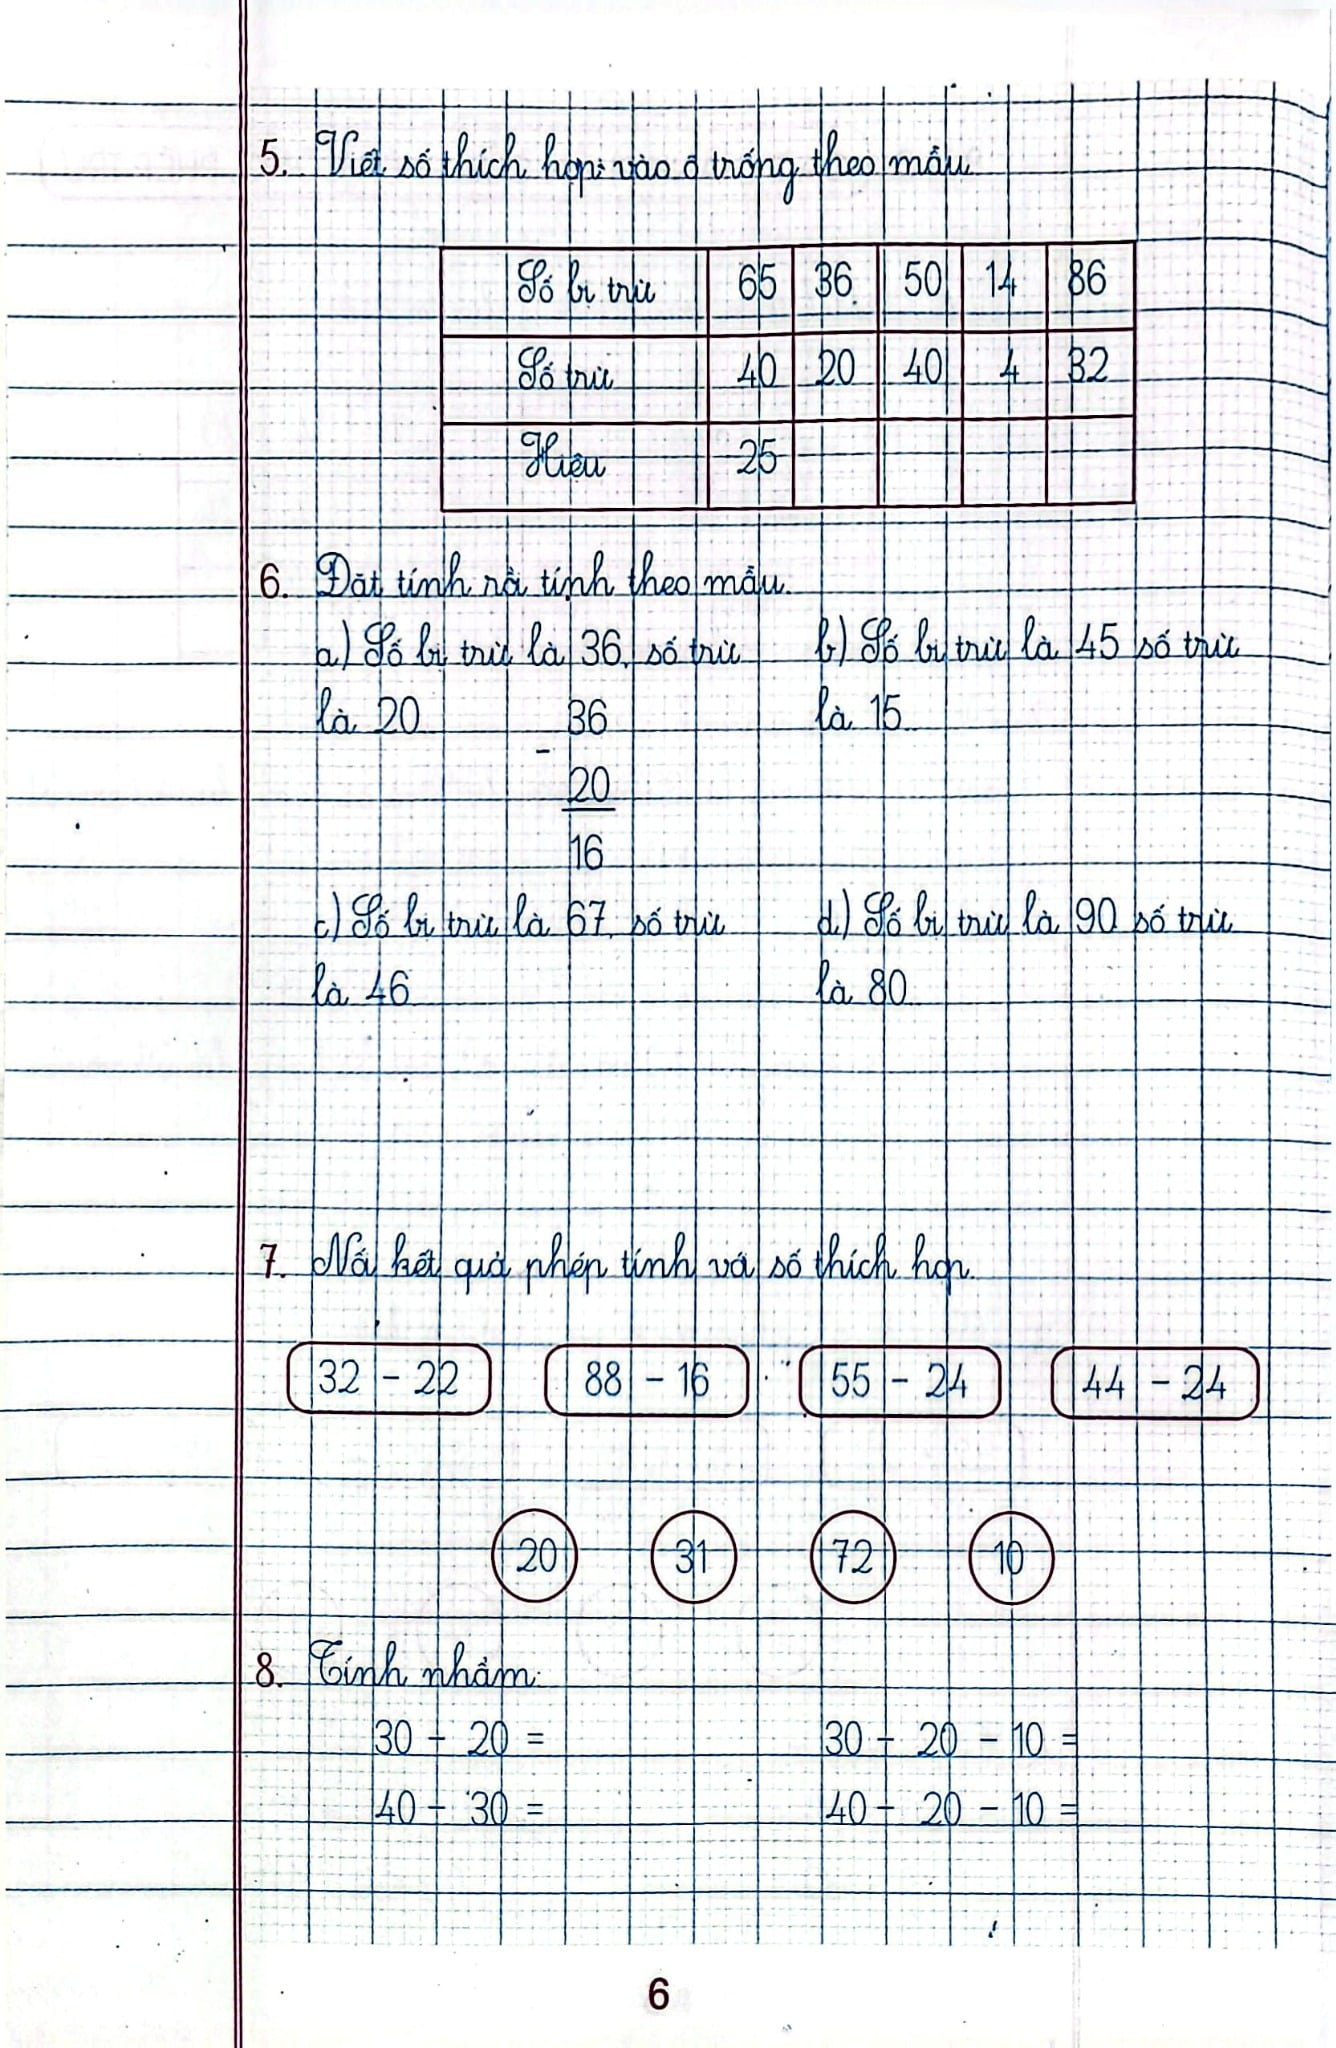 5. Viết số thích hợp vào ô trống theo mẫu.
Số bị trừ 65 36 50 14 86
Số trừ 40 20 40 4 32
Hiệu 25
6. Đặt tính rồi tính theo mẫu.
a) Số bị trừ là 36, số trừ
là 20
b) Số bị trừ là 45 số trừ
là 15
36
-
20
16
c) Số bị trừ là 67, số trừ
là 46
d) Số bị trừ là 90 số trừ
là 80
7. Nối kết quả phép tính với số thích hợp.
32 - 22 88 - 16 55 - 24 44 - 24
20 31 72 10
8. Tính nhẩm:
30 - 20 = 30 - 20 - 10 =
40 - 30 = 40 - 20 - 10 =
6